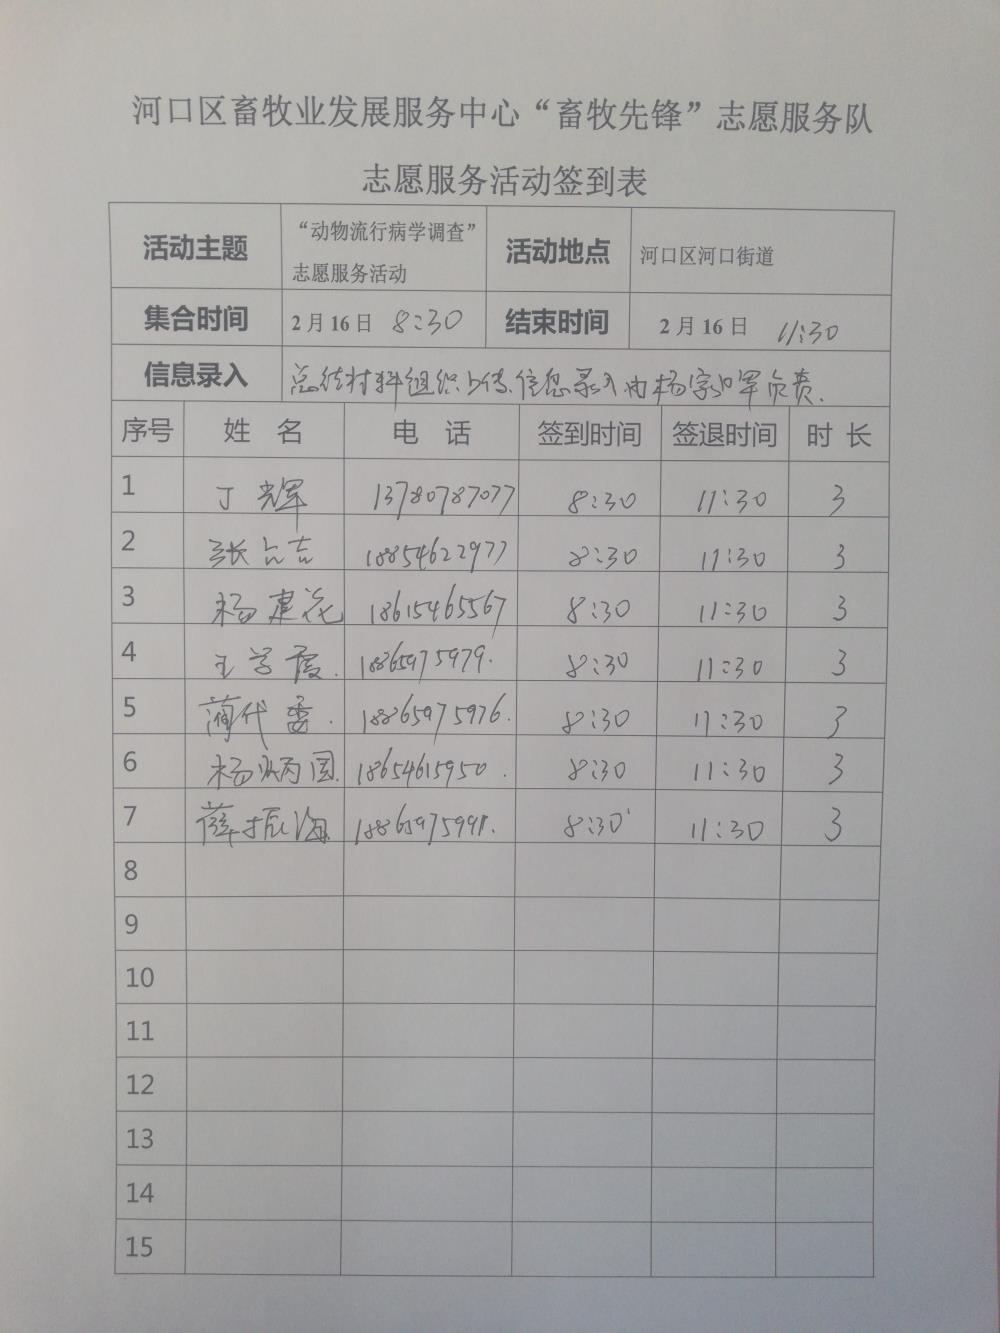 河口区畜牧业发展服务中心“畜牧先锋”志愿服务队
志愿服务活动签到表
活动主题 “动物流行病学调查” 志愿服务活动 活动地点 河口区河口街道
集合时间 2月16日 8:30 结束时间 2月16日 11:30
信息录入 总结材料组织上传、信息录入由杨负责.
序号 姓 名 电 话 签到时间 签退时间 时 长
1 丁辉 13780787077 8:30 11:30 3
2 张吉 18854622977 8:30 11:30 3
3 杨建花 18615465567 8:30 11:30 3
4 王学霞. 18865975979. 8:30 11:30 3
5 蔺代委. 18865975976. 8:30 11:30 3
6 杨炳国. 18654615950. 8:30 11:30 3
7 薛振海 8:30 11:30 3
8
9
10
11
12
13
14
15